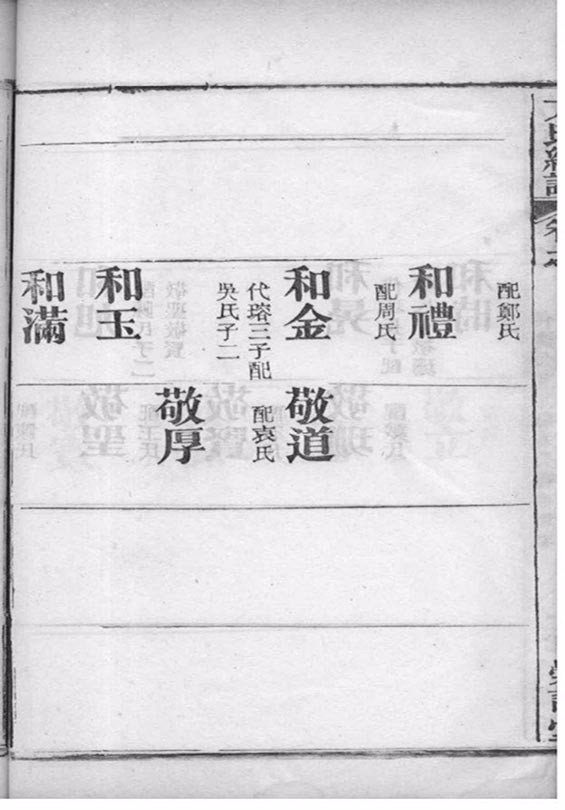 配鄭氏
和禮
配周氏
和金
代瑢三子配
吳氏子二
和玉
和滿
敬道
配袁氏
敬厚